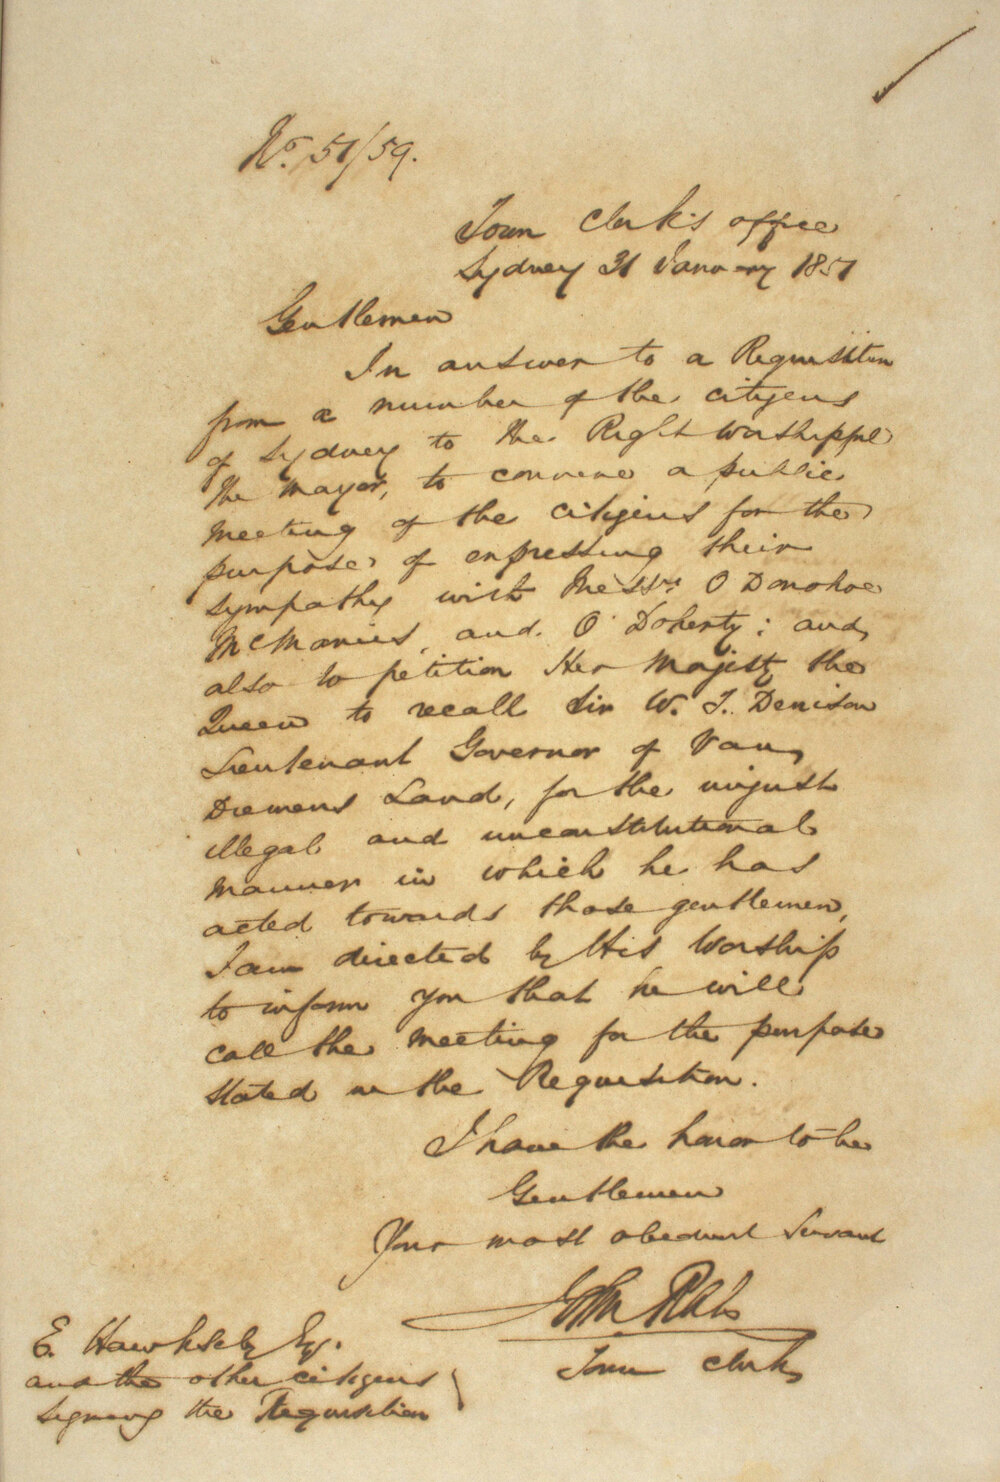 No. 51/59.
Town Clerk's office
Sydney 31 January 1851
Gentlemen
In answer to a Requisition
from a number of the citizens
of Sydney to the Right Worshipful
the Mayor, to convene a public
meeting of the citizens for the
purpose of expressing their
sympathy with Messrs O'Donohoe
McManus, and O'Doherty; and
also to petition Her Majesty the
Queen to recall Sir W. T. Denison
Lieutenant Governor of Van
Diemens Land, for the unjust
illegal and unconstitutional
manner in which he has
acted towards those gentlemen,
I am directed by His Worship
to inform you that he will
call the meeting for the purpose
stated in the Requisition.
I have the honor to be
Gentlemen
Your most obedient Servant
John
Town Clerk
E. Hawksley Esq.
and the other citizens
signing the Requisition